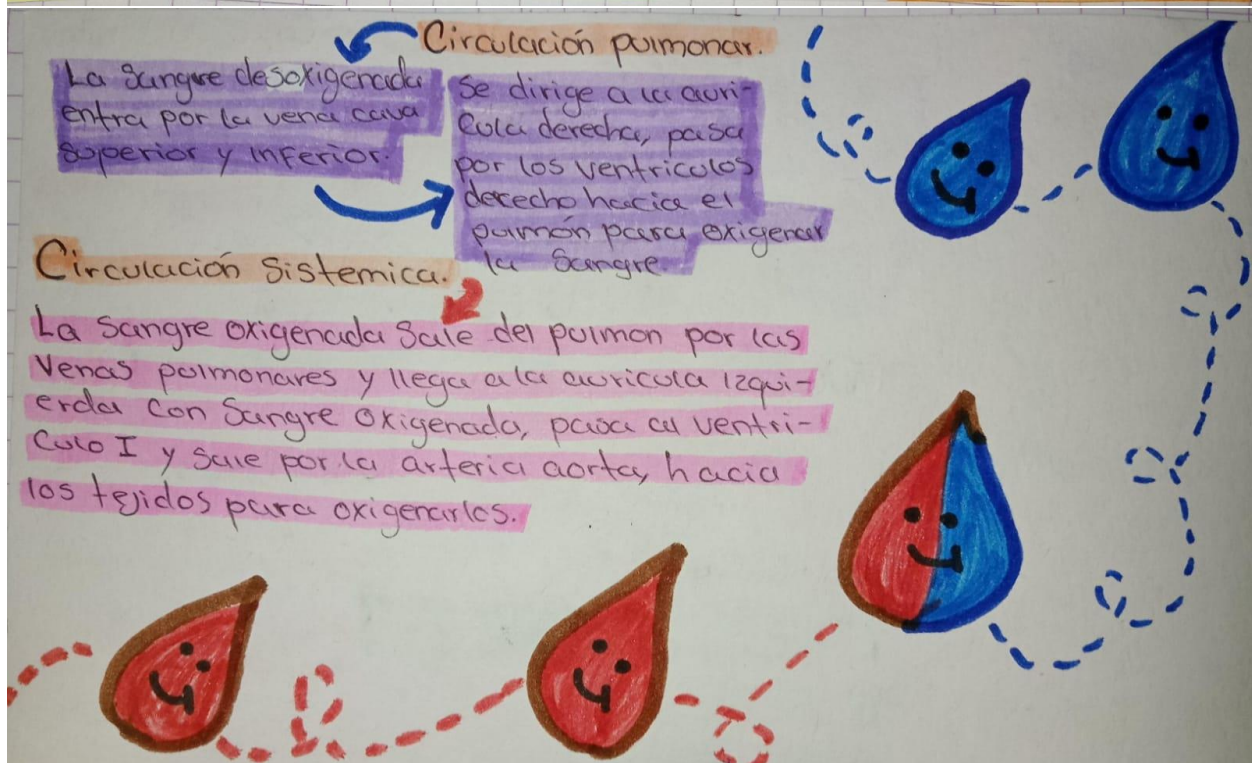 Circulación pulmonar.
La Sangre desoxigenada
entra por la vena cava
superior y inferior.
Se dirige a la aurí-
cula derecha, pasa
por los ventriculos
derecho hacia el
pulmón para oxigenar
la Sangre.
Circulación Sistemica.
La Sangre oxigenada Sale del pulmon por las
Venas pulmonares y llega a la auricula izqui-
erda con Sangre oxigenada, pasa al ventri-
culo I y sale por la arteria aorta, hacia
los tejidos para oxigenarlos.